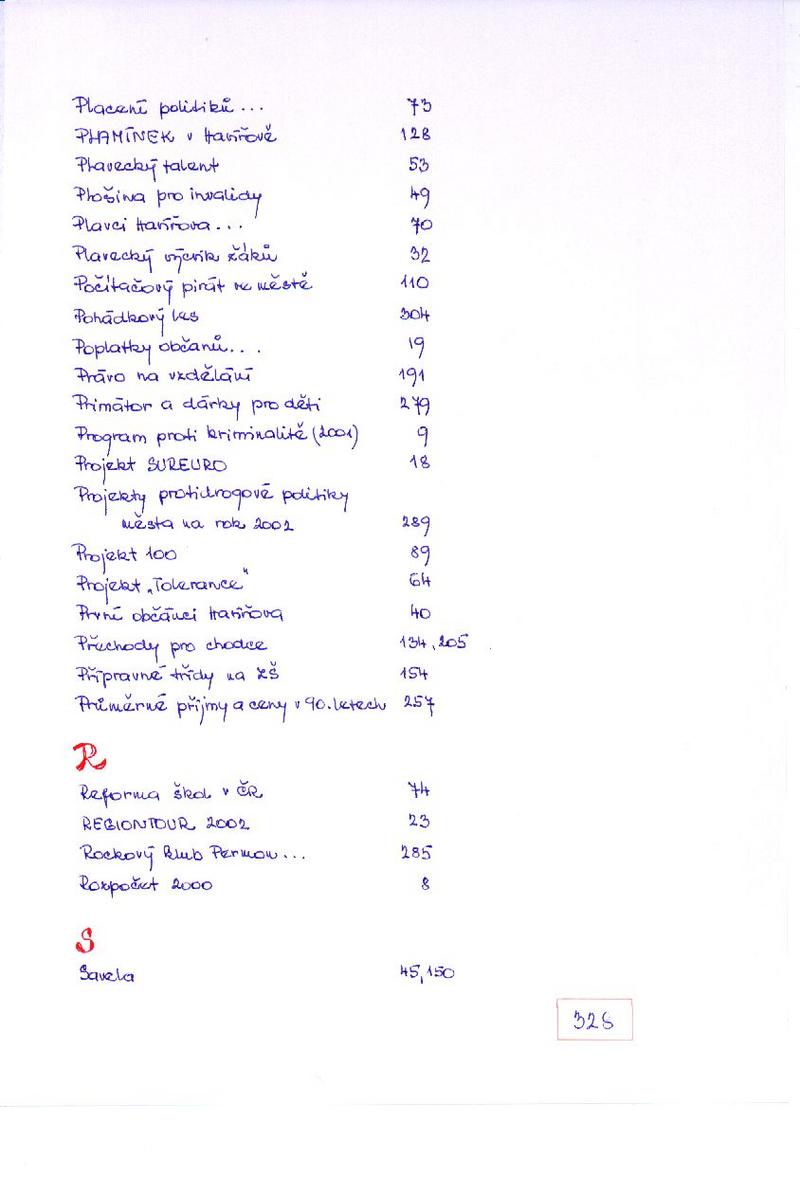 Placení politiků... 73
PLAMÍNEK v Havířově 128
Plavecký talent 53
Plošina pro invalidy 49
Plavci Havířova... 70
Plavecký výcvik žáků 32
Počítačový pirát ve městě 110
Pohádkový les 304
Poplatky občanů... 19
Právo na vzdělání 191
Primátor a dárky pro děti 279
Program proti kriminalitě (2001) 9
Projekt SUREURO 18
Projekty protidrogové politiky
města na rok 2002 289
Projekt 100 89
Projekt „Tolerance“ 64
První občánci Havířova 40
Přechody pro chodce 134, 205
Přípravné třídy na ZŠ 154
Průměrné příjmy a ceny v 90. letech 257
R
Reforma škol v ČR 74
REGIONTOUR 2002 23
Rockový klub Permon... 285
Rozpočet 2000 8
S
Savela 45, 150
328